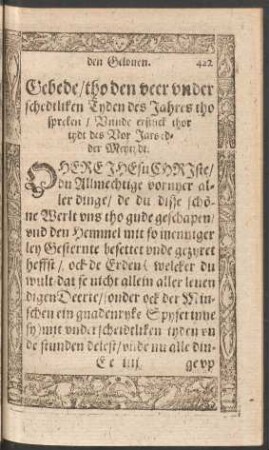 den Gelouen. 422
Gebede / tho den veer vnder
schedtliken Tyden des Jahres tho
spreken / Vnnde erstlick thor
tydt des Vor Jars edder
der Meytydt.
O HERE JHESu CHRJste /
du Allmechtige vornyer al-
ler dinge / de du disse schö-
ne Werlt vns tho gude geschapen /
vnd den Hemmel mit so menniger
ley Gesternte besettet vnde gezyret
heffst / ock de Erden / welcker du
wult dat se nicht allein aller leuen
digen Deerte / sonder ock der Min-
schen ein gnadenryke Spyserinne
sy / mit vnderscheidtliken tyden vn
de stunden delest / vnde nu alle din-
Ee iiij ge vp